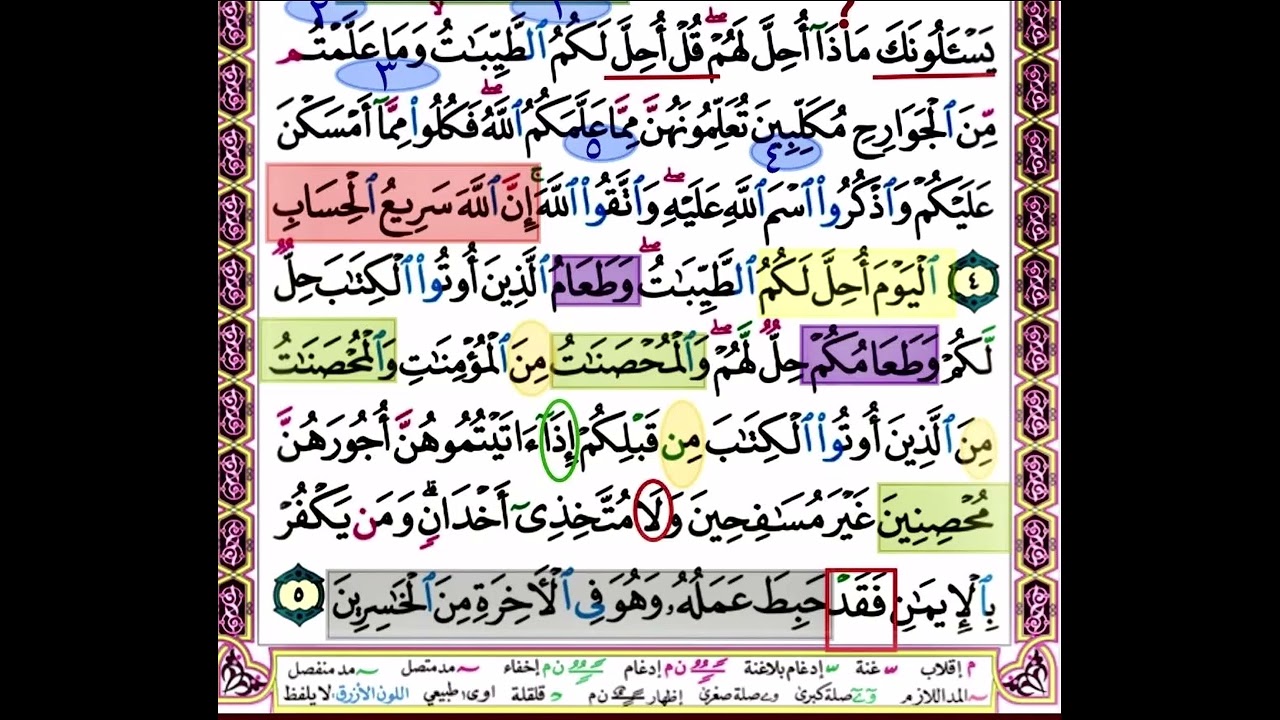 ٢ ١ ؟
يَسْـَٔلُونَكَ مَاذَآ أُحِلَّ لَهُمْ ۖ قُلْ أُحِلَّ لَكُمُ ٱلطَّيِّبَـٰتُ ۙ وَمَا عَلَّمْتُم
٣
مِّنَ ٱلْجَوَارِحِ مُكَلِّبِينَ تُعَلِّمُونَهُنَّ مِمَّا عَلَّمَكُمُ ٱللَّهُ ۖ فَكُلُوا۟ مِمَّآ أَمْسَكْنَ
٥ ٤
عَلَيْكُمْ وَٱذْكُرُوا۟ ٱسْمَ ٱللَّهِ عَلَيْهِ ۖ وَٱتَّقُوا۟ ٱللَّهَ ۚ إِنَّ ٱللَّهَ سَرِيعُ ٱلْحِسَابِ
٤ ٱلْيَوْمَ أُحِلَّ لَكُمُ ٱلطَّيِّبَـٰتُ ۖ وَطَعَامُ ٱلَّذِينَ أُوتُوا۟ ٱلْكِتَـٰبَ حِلٌّ
لَّكُمْ وَطَعَامُكُمْ حِلٌّ لَّهُمْ ۖ وَٱلْمُحْصَنَـٰتُ مِنَ ٱلْمُؤْمِنَـٰتِ وَٱلْمُحْصَنَـٰتُ
مِنَ ٱلَّذِينَ أُوتُوا۟ ٱلْكِتَـٰبَ مِن قَبْلِكُمْ إِذَآ ءَاتَيْتُمُوهُنَّ أُجُورَهُنَّ
مُحْصِنِينَ غَيْرَ مُسَـٰفِحِينَ وَلَا مُتَّخِذِىٓ أَخْدَانٍ ۗ وَمَن يَكْفُرْ
بِٱلْإِيمَـٰنِ فَقَدْ حَبِطَ عَمَلُهُۥ وَهُوَ فِى ٱلْـَٔاخِرَةِ مِنَ ٱلْخَـٰسِرِينَ ٥
م إقلاب غنة إدغام بلاغنة ن م إدغام ن م إخفاء مد متصل مد منفصل
المد اللازم صلة كبرى صلة صغرى إظهار ن م د قلقلة اوى طبيعي اللون الأزرق لا يلفظ